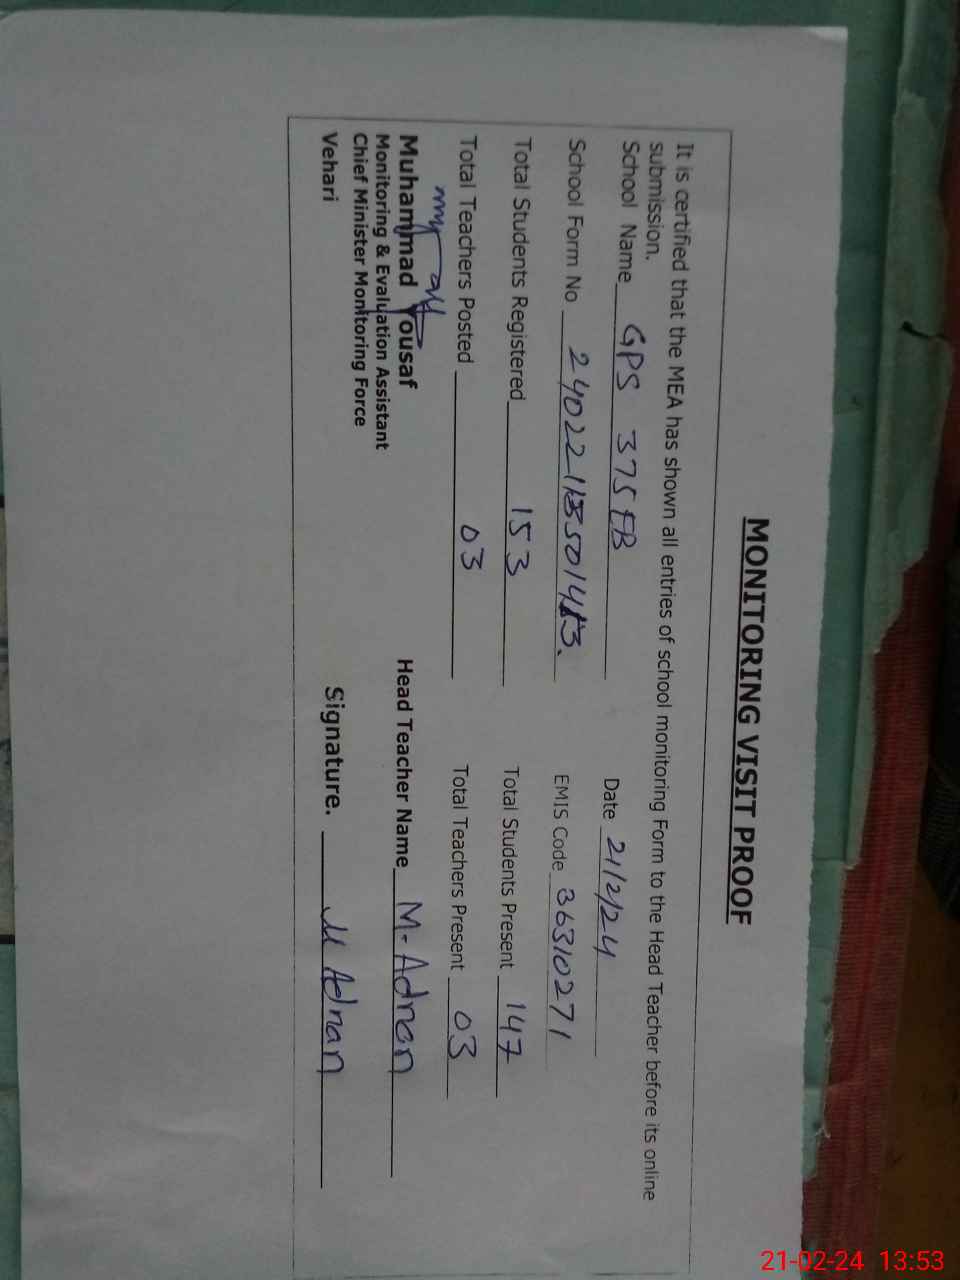 MONITORING VISIT PROOF
It is certified that the MEA has shown all entries of school monitoring Form to the Head Teacher before its online
submission.
School Name GPS 375 EB Date 21/2/24
School Form No EMIS Code 36310271
Total Students Registered 153 Total Students Present 147
Total Teachers Posted 03 Total Teachers Present 03
Muhammad Yousaf Head Teacher Name M-Adnan
Monitoring & Evaluation Assistant
Chief Minister Monitoring Force
Vehari Signature. M Adnan
21-02-24 13:53